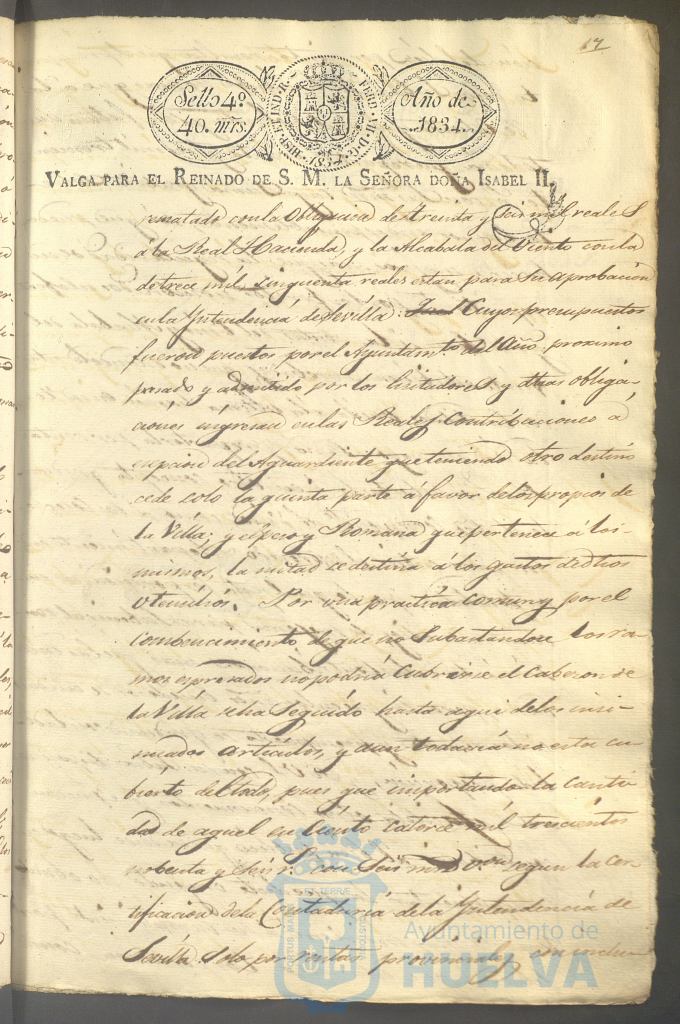 17
Sello 4º
40. mrs.
HISP. ET IND. R. FERD. VII. D. G. 1834
Año de
1834.
VALGA PARA EL REINADO DE S. M. LA SEÑORA DOÑA ISABEL II.
rematado con la Obligacion de treinta y seis mil reales
á la Real Hacienda, y la Alcabala del Viento con la
de trece mil, cinquenta reales estan para su aprobacion
en la Yntendencia de Sevilla: Cuyos presupuestos
fueron puestos por el Ayuntamto. del Año proximo
pasado y admitido por los licitadores. y dhas obliga-
ciones ingresan en las Reales Contribuciones á
espcion del Aguardiente que teniendo otro destino
cede solo la quinta parte á favor de los propios de
la Villa; y el peso y Romana que pertenece á los
mismos, la mitad se destina á los gastos de dhos
Utensilios. Por una practica comun y por el
combencimiento de que no Subastandose los ra-
mos espresados no podria Cubrirse el Cabezon de
la Villa se ha Seguido hasta aqui de los insi-
nuados articulos, y aun todavia no esta cu-
bierto del todo, pues que importando la canti-
dad de aquel en Ciento catorce mil trescientos
nobenta y Seis rs. con Seis mrs. von segun la cer-
tificacion de la Contaduria de la Yntendencia de
Sevilla Solo por rentas provinciales con inclu
PORTUS MARIS ET TERRÆ CUSTODIA
Ayuntamiento de
HUELVA